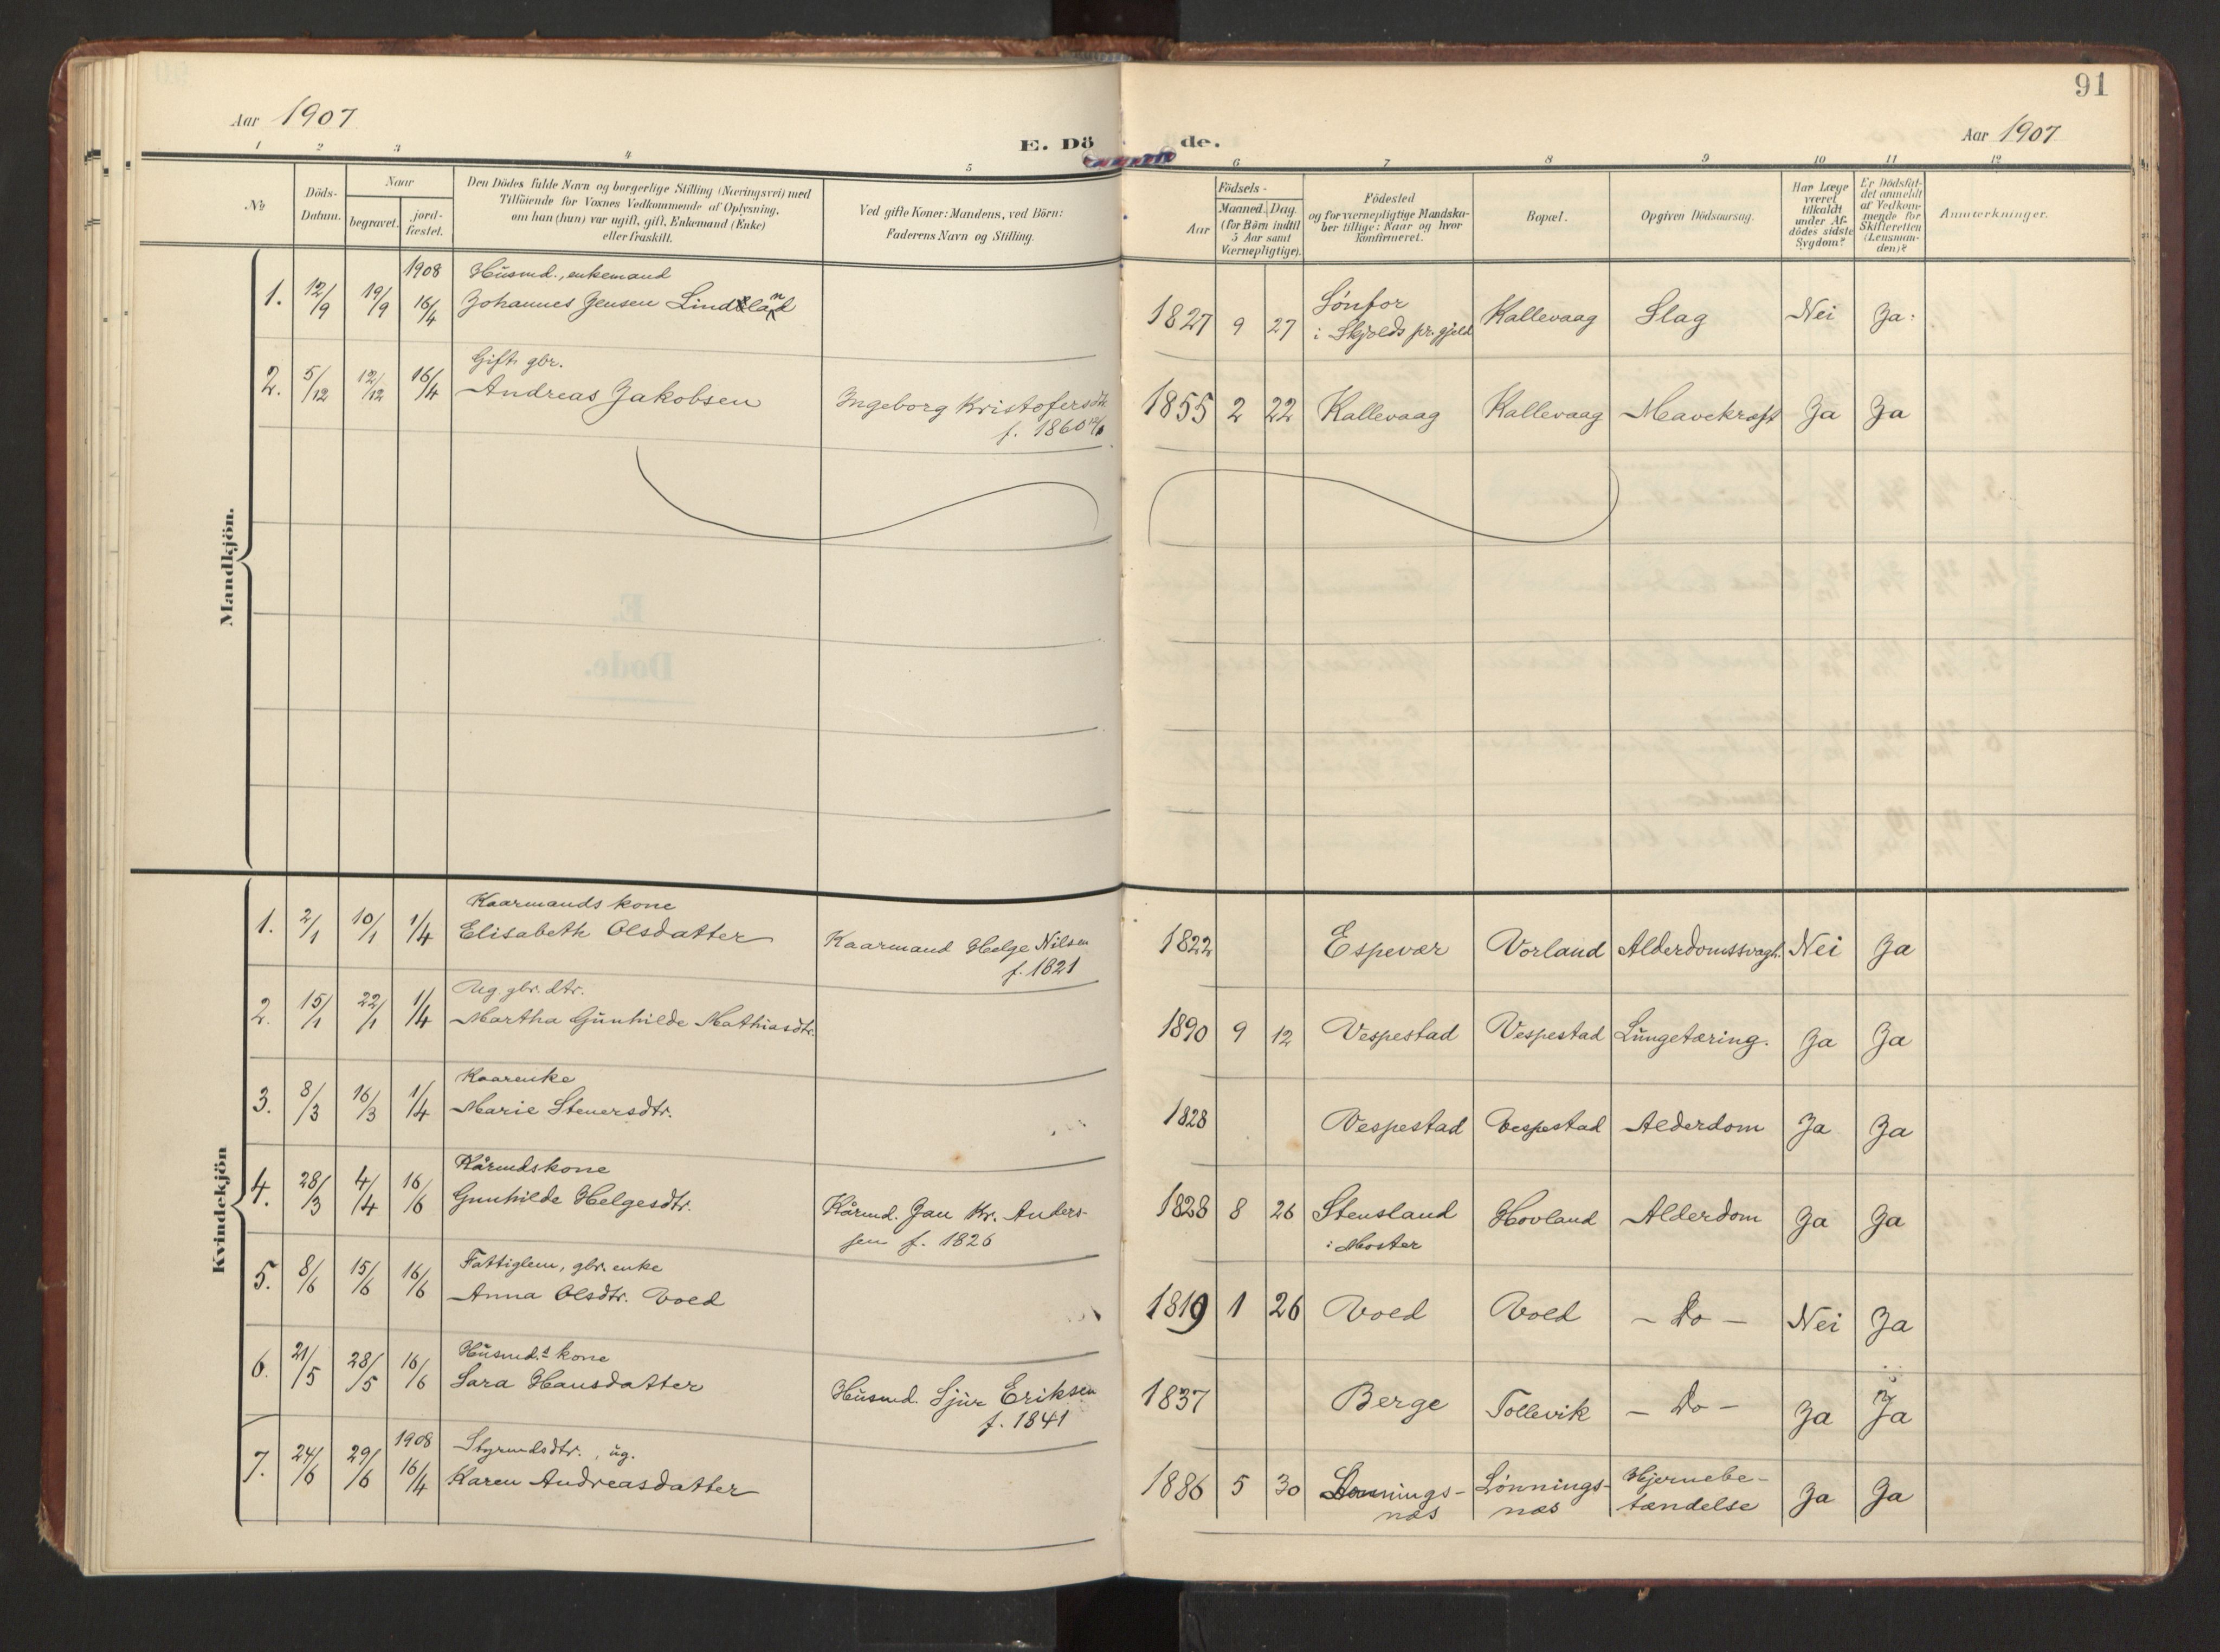 91
Aar 1907
E. Dö de.
Aar 1907
1 2 3 4 5 6 7 8 9 10 11 12
No
Döds-
Datum.
Naar
begravet.
jord-
fæstet.
Den Dödes fulde Navn og borgerlige Stilling (Næringsvei) med
Tilföiende for Voxnes Vedkommende af Oplysning,
om han (hun) var ugift, gift, Enkemand (Enke)
eller fraskilt.
Ved gifte Koner: Mandens, ved Börn:
Faderens Navn og Stilling.
Födsels-
Aar
Maaned. Dag.
(for Börn indtil
5 Aar samt
Værnepligtige).
Födested
og for værnepligtige Mandska-
ber tillige: Naar og hvor
Konfirmeret.
Bopæl.
Opgiven Dödsaarsag.
Har Læge
været
tilkaldt
under Af-
dödes sidste
Sygdom?
Er Dödsfal-
det anmeldt
af Vedkom-
mende for
Skifteretten
(Lensman-
den)?
Anmærkninger.
Mandkjön.
1908 Husmd., enkemand
1. 12/9 19/9 16/4 Johannes Jensen Lindland 1827 9 27 Sønfor Kallevaag Slag Nei Ja
i Skjolds pr.gjeld
Gift gbr.
2. 5/12 12/12 16/4 Andreas Jakobsen Ingeborg Kristofersdtr. 1855 2 22 Kallevaag Kallevaag Mavekræft Ja Ja
f. 1860
Kvindekjön
Kaarmands kone
1. 2/1 10/1 1/4 Elisabeth Olsdatter Kaarmand Helge Nilsen 1822 Espevær Vorland Alderdomssvagh. Nei Ja
f. 1821
Ug. gbr. dtr.
2. 15/1 22/1 1/4 Martha Gunhilde Mathiasdtr. 1890 9 12 Vespestad Vespestad Lungetæring. Ja Ja
Kaarenke
3. 8/3 16/3 1/4 Marie Stenersdtr. 1828 Vespestad Vespestad Alderdom Ja Ja
Kårmdskone
4. 28/3 4/4 16/6 Gunhilde Helgesdtr. Kårmd. Jan Kr. Anders- 1828 8 26 Stensland Hovland Alderdom Ja Ja
sen f. 1826 i Moster
Fattiglem, gbr. enke
5. 8/6 15/6 16/6 Anna Olsdtr. Vold 1819 1 26 Vold Vold – Do – Nei Ja
Husmd.s kone
6. 21/5 28/5 16/6 Sara Hansdatter Husmd. Sjur Eriksen 1837 Berge Tollevik – Do – Ja Ja
f. 1841
1908 Styrmdsdtr., ug.
7. 24/6 29/6 16/4 Karen Andreasdatter 1886 5 30 Lønnings- Lønnings- Hjernebe- Ja Ja
næs næs tændelse